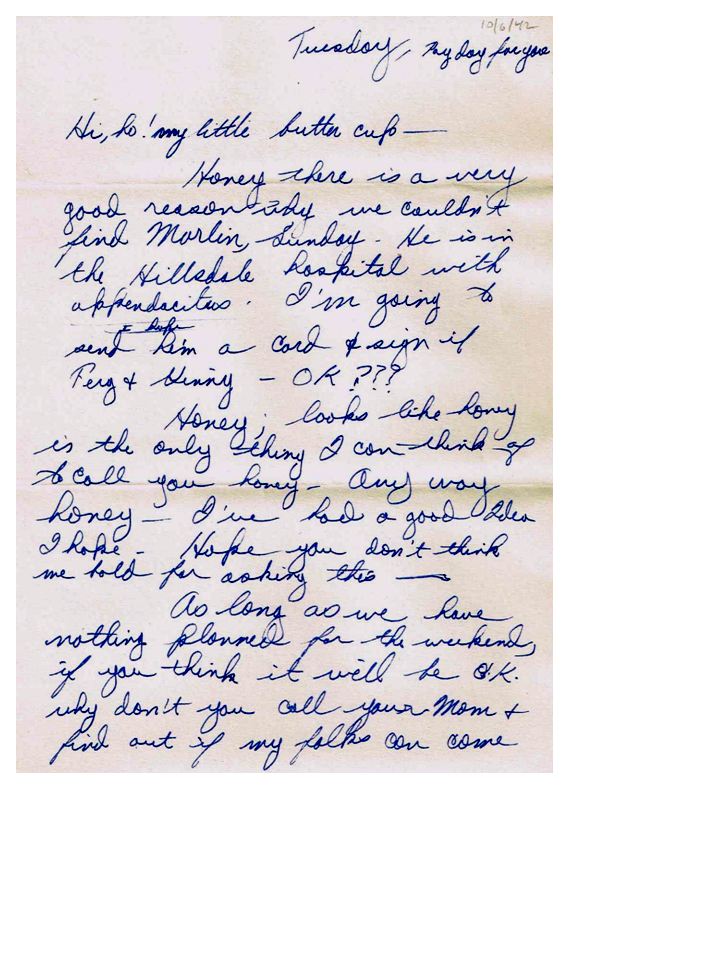 10/6/42
Tuesday, Pay day for you
Hi, ho! my little butter cup —
Honey there is a very
good reason why we couldn't
find Marlin, Sunday. He is in
the Hillsdale hospital with
appendacitus. I'm going to
I hope
send him a card & sign if
Ferg & Ginny - OK ???
Honey; looks like honey
is the only thing I can think of
to call you honey - Any way
honey — I've had a good Idea
I hope - Hope you don't think
me bold for asking this —
As long as we have
nothing planned for the weekend,
if you think it will be O.K.
why don't you call your Mom &
find out if my folks can come